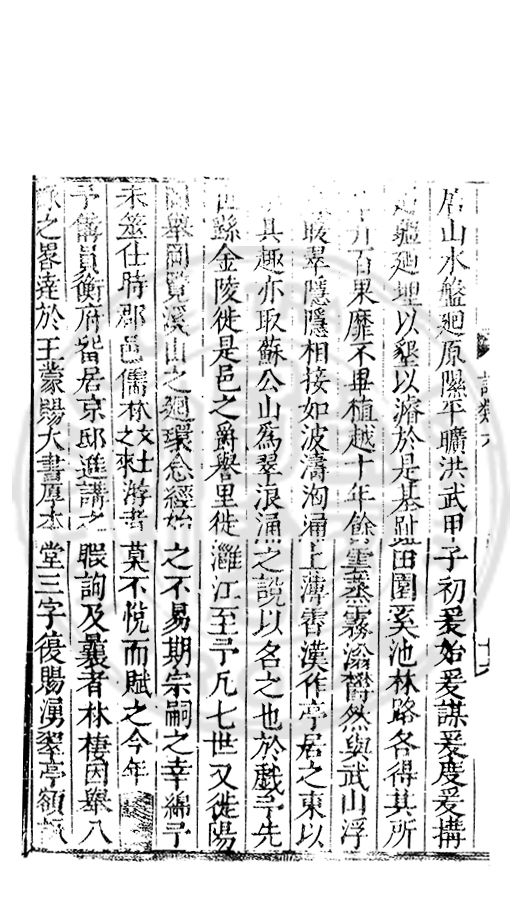 居山水盤廻原隰平曠洪武甲子初爰始爰謀爰度爰搆
廻埋以墾以濬於是基趾田園奚池林路各得其所
百果靡不畢植越十年餘雲蒸霧滃鬱然與武山浮
嵐暖翠隱隱相接如波濤洶涌上薄霄漢作亭居之東以
其趣亦取蘇公山為翠浪涌之說以名之也於戲予先
世繇金陵徙是邑之爵譽里徙灉江至予凡七世又徙陽
岡舉岡覽溪山之廻環念經始之不易期宗嗣之幸綿予
未筮仕時郡邑儒林文士之來游者莫不悅而賦之今年
予備員衡府留居京邸進講之暇詢及曩者林棲因舉八
詠之畧達於王蒙賜大書厚本堂三字復賜湧翠亭額